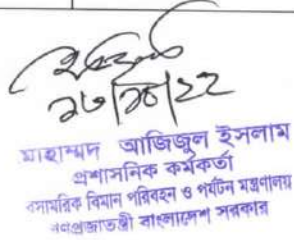 ১৬/১০/২২
মোহাম্মদ আজিজুল ইসলাম
প্রশাসনিক কর্মকর্তা
বেসামরিক বিমান পরিবহন ও পর্যটন মন্ত্রণালয়
গণপ্রজাতন্ত্রী বাংলাদেশ সরকার